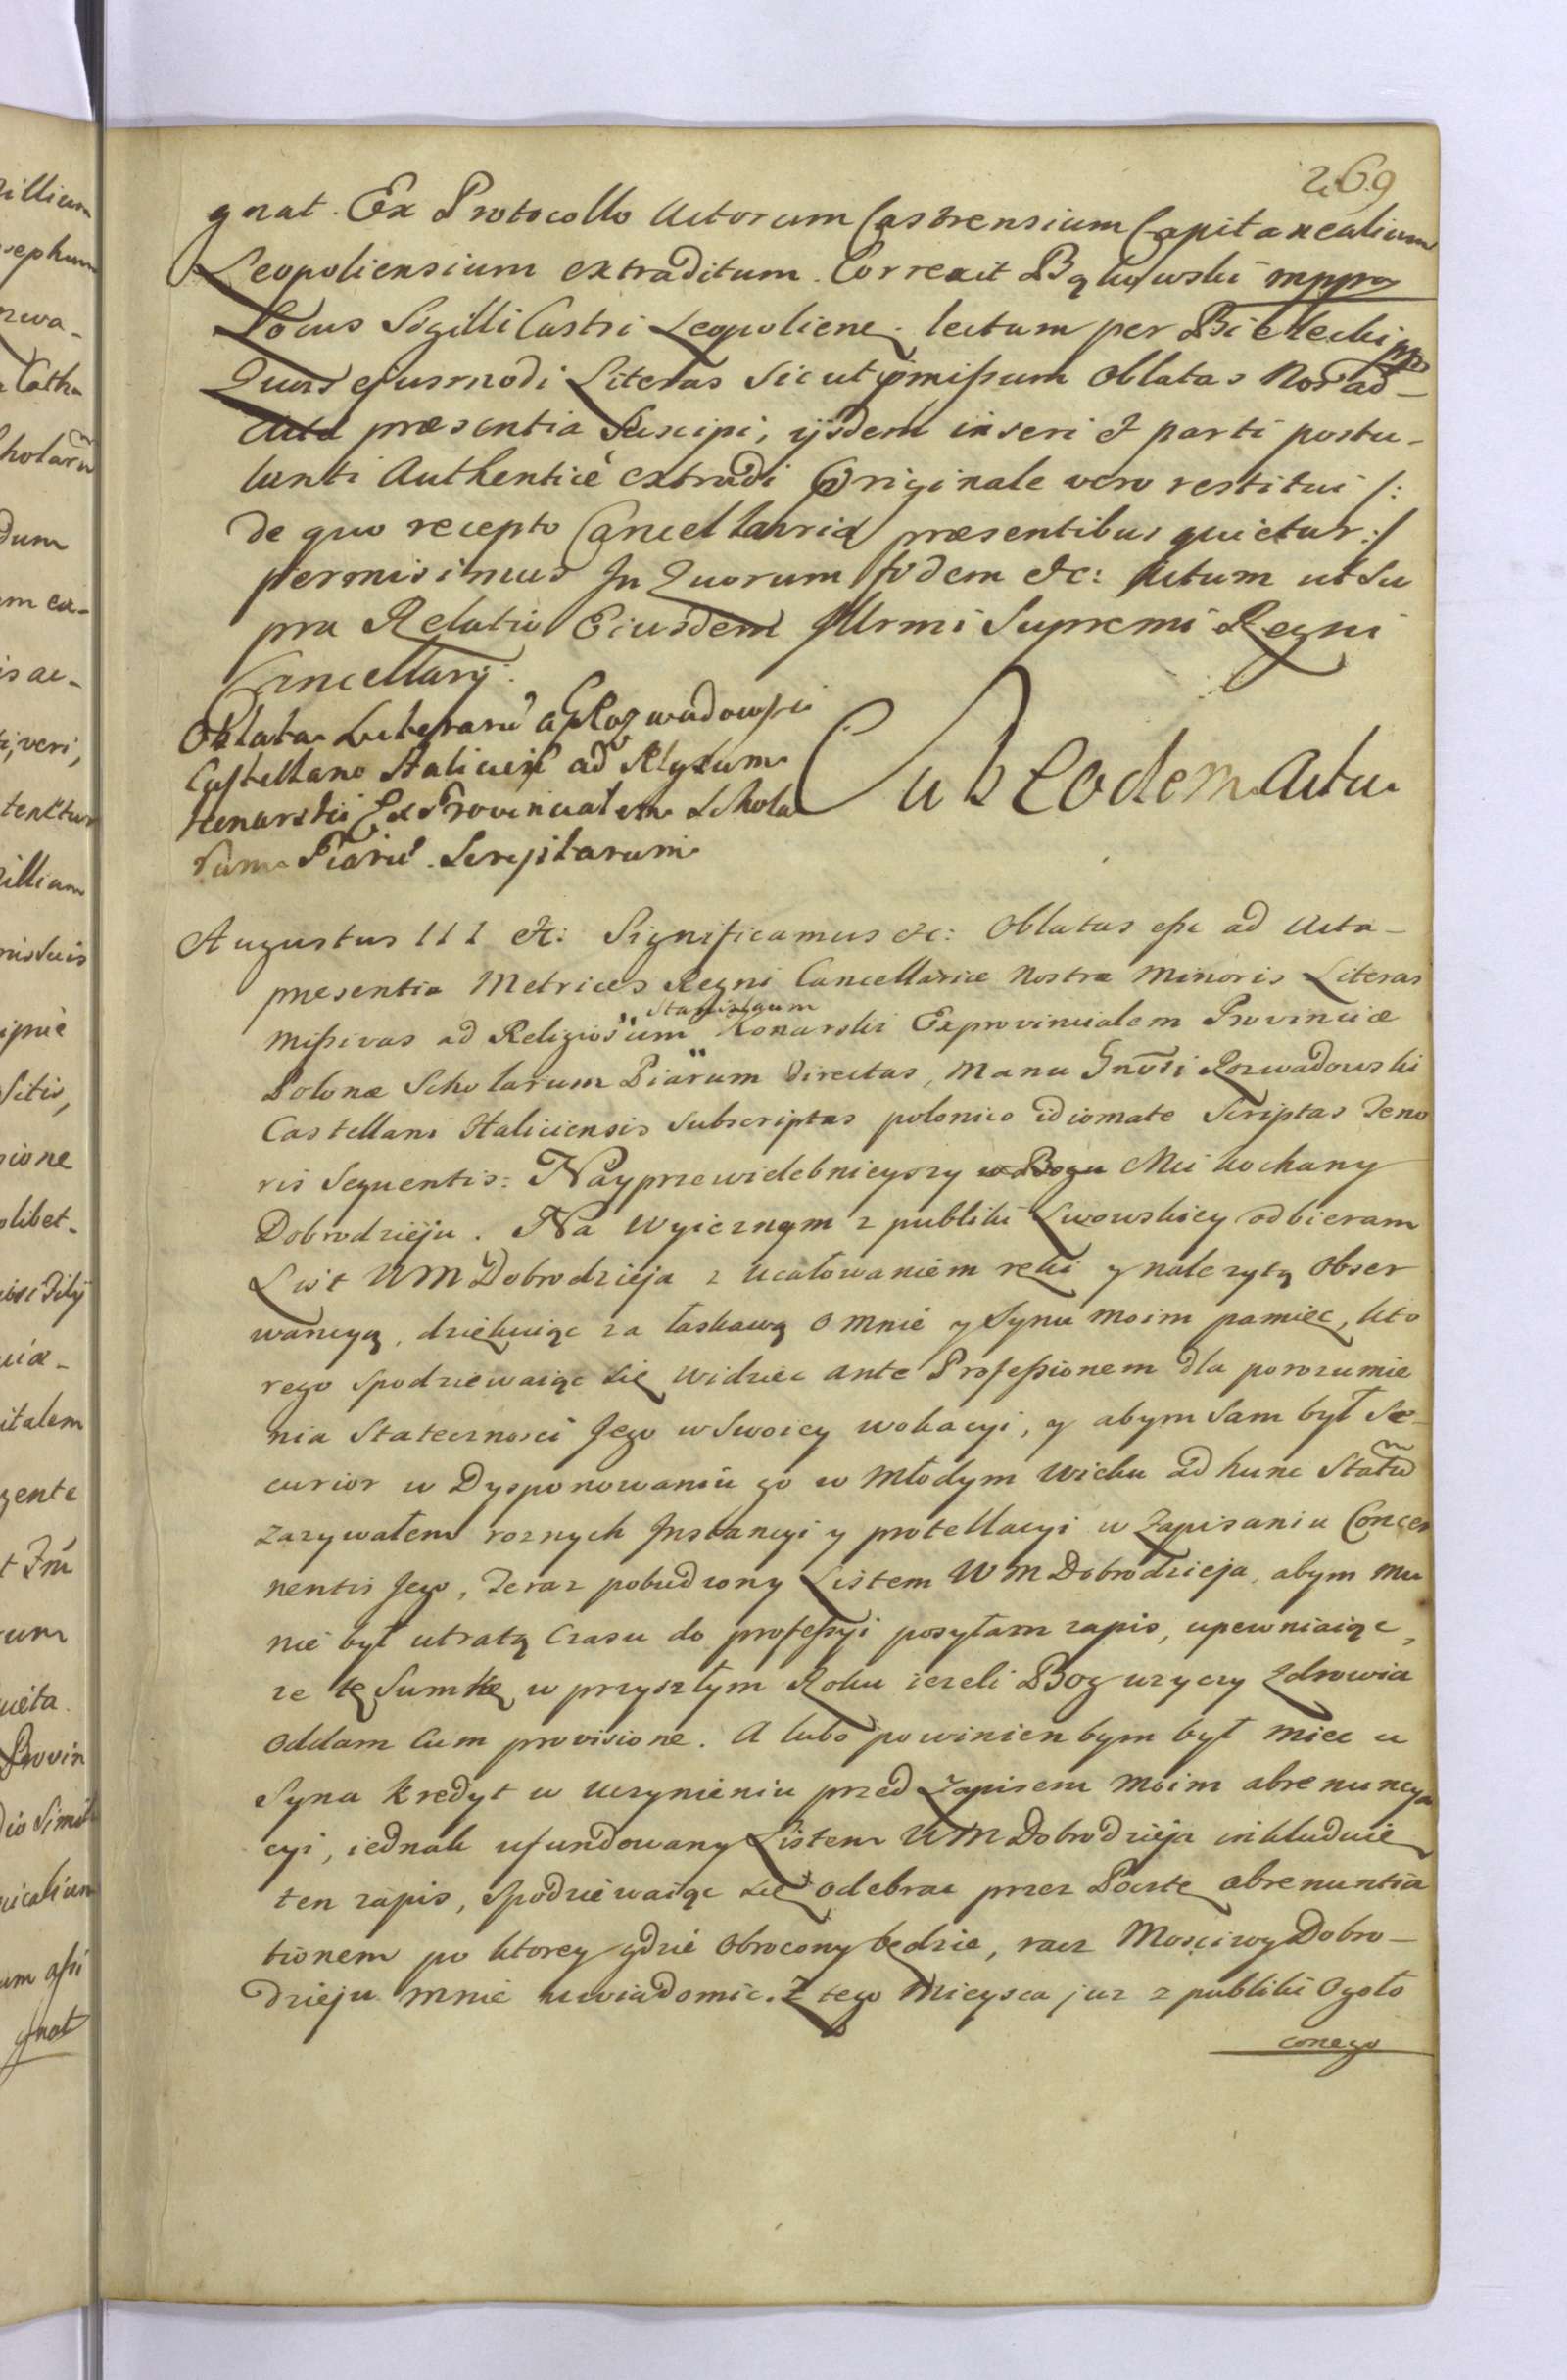 269
gnat. Ex Protocollo Actorum Castrensium Capitanealium
Leopoliensium extraditum. Correxit Bąkowski mppra
Locus Sigilli Castri Leopoliens. lectum per Bielecki mpp
Quas ejusmodi Literas Sicut pmißum Oblatas Nos ad
Acta præsentia Suscipi, ijsdem inseri et parti postu-
lanti Authenticè extradi Originale vero restitui /:
de quo recepto Cancellaria præsentibus quietur :/
permisimus In Quorum fidem etc: Actum ut Su
pra Relatio Eiusdem Illrmi Supremi Regni
Cancellarij.
Oblata Literarū a G. Rozwadowski
Castellano Haliciens ad Rlgsum
Konarski Ex Provincialem Schola
rum Piarū. Scriptarum
Sub Eodem Actu
Augustus III etc: Significamus etc: Oblatas eße ad Acta
præsentia Metrices Regni Cancellariæ Nostræ Minoris Literas
mißivas ad Religiosum Stanislaum Konarski Exprovincialem Provinciæ
Polonæ Scholarum Piarum directas, Manu Gnosi Rozwadowski
Castellani Haliciensis Subscriptas polonico idiomate Scriptas Teno
ris Sequentis: Nayprzewielebnieyszy w Bogu Mci kochany
Dobrodzieju. Na wyieznym z publiki Lwowskiey odbieram
List WM Dobrodzieja z ucałowaniem ręki y należytą Obser
wancyą, dziękuiąc za łaskawą o mnie y Synu moim pamięc, kto
rego Spodziewaiąc się widziec ante Profeßionem dla porozumie
nia Stateczności Jego w Swoicy wokacyi, y abym Sam był Se-
curior w Dysponowaniu go w Młodym Wieku ad hunc Statū
zazywałem roznych Instancyi y protellacyi w Zapisaniu Concer
nentis Jego, Teraz pobudzony Listem WM Dobrodzieja, abym mu
nie był utratą Czasu do profeßyi posyłam zapis, upewniaiąc,
ze tę Sumkę w przyszłym Roku iezeli Bog uzyczy Zdrowia
Oddam Cum provisione. A lubo powinienbym był miec u
Syna kredyt w Uczynieniu przed Zapisem Moim abrenuncya
cyi, iednak ufundowany Listem WM Dobrodzieja inkluduię
ten zapis, Spodziewaiąc się odebrac przez Pocztę abrenuntia
tionem po ktorey gdzie Obrocony będzie, racz Mosciwy Dobro-
dzieju mnie uwiadomic. Z tego Mieysca juz z publiki Ogoło
conego